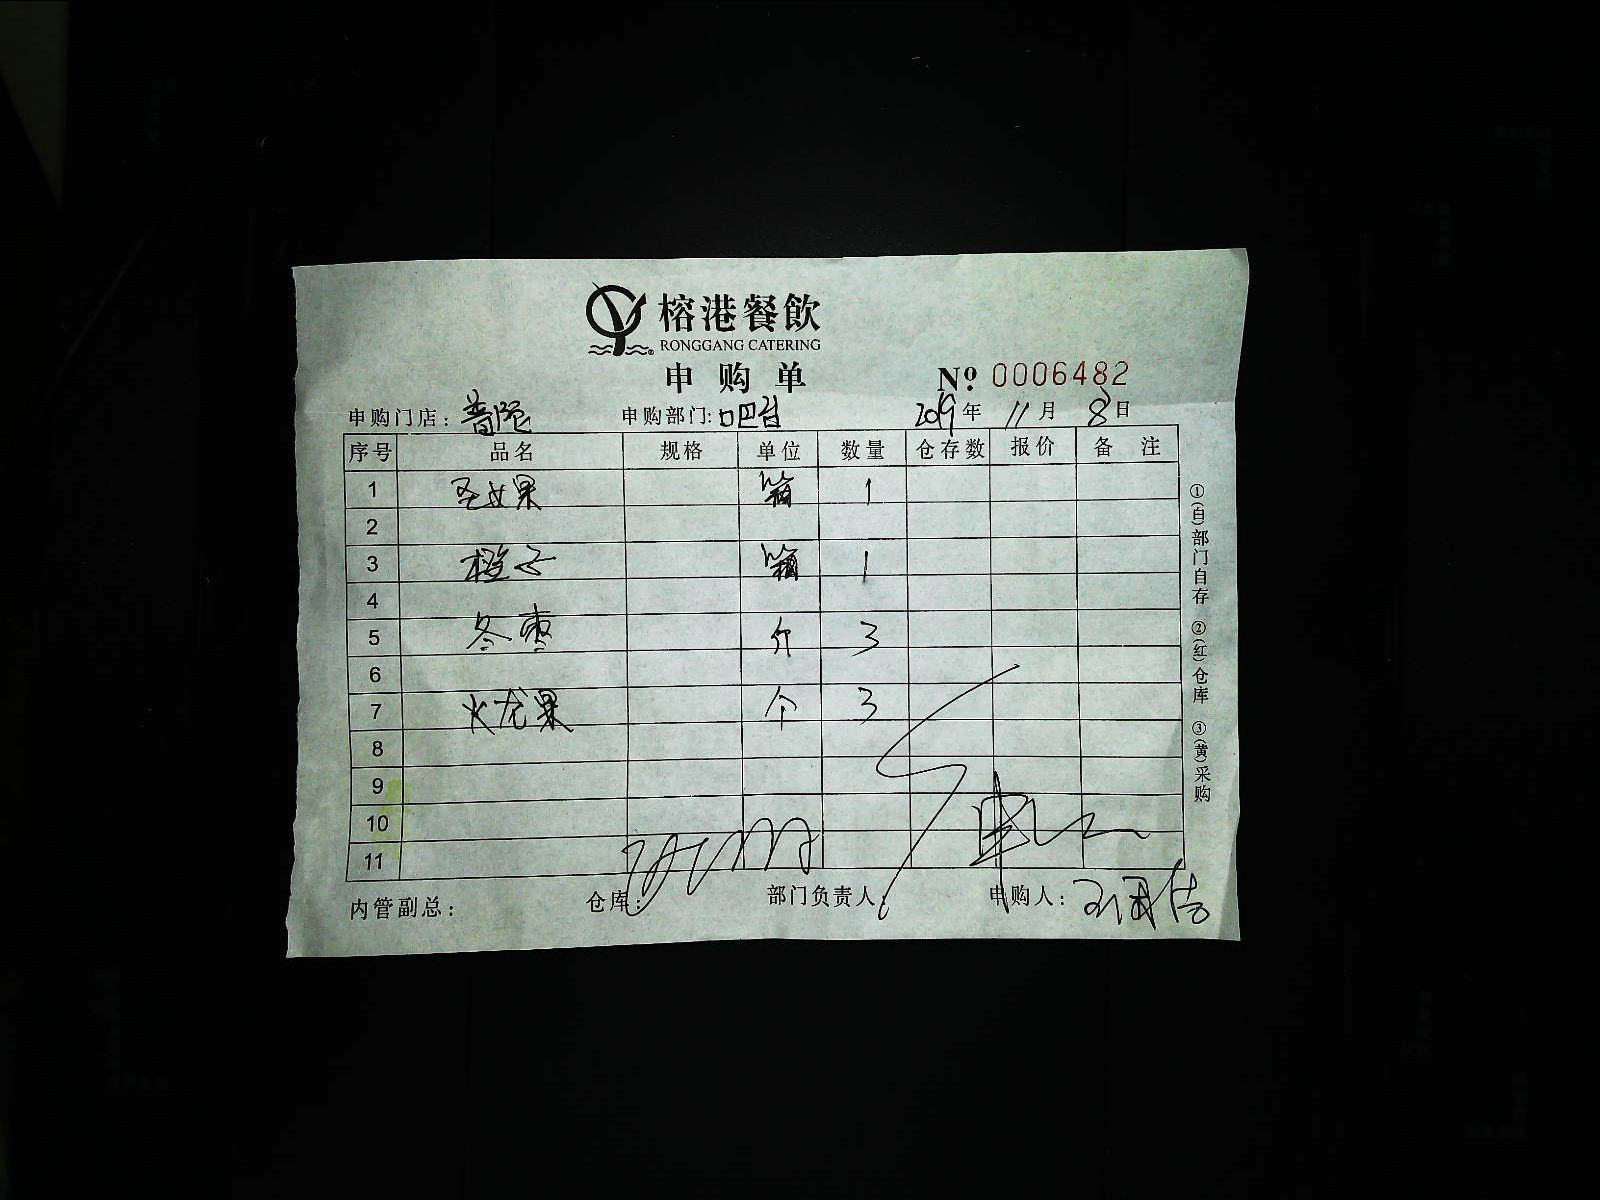 榕港餐飲
RONGGANG CATERING
申购单 Nº 0006482
申购门店：普陀 申购部门：吧台 2019年11月8日
序号 品名 规格 单位 数量 仓存数 报价 备注
1 圣女果 箱 1
2
3 橙子 箱 1
4
5 冬枣 斤 3
6
7 火龙果 个 3
8
9
10
11
内管副总： 仓库： 部门负责人： 申购人：
①(白)部门自存 ②(红)仓库 ③(黄)采购